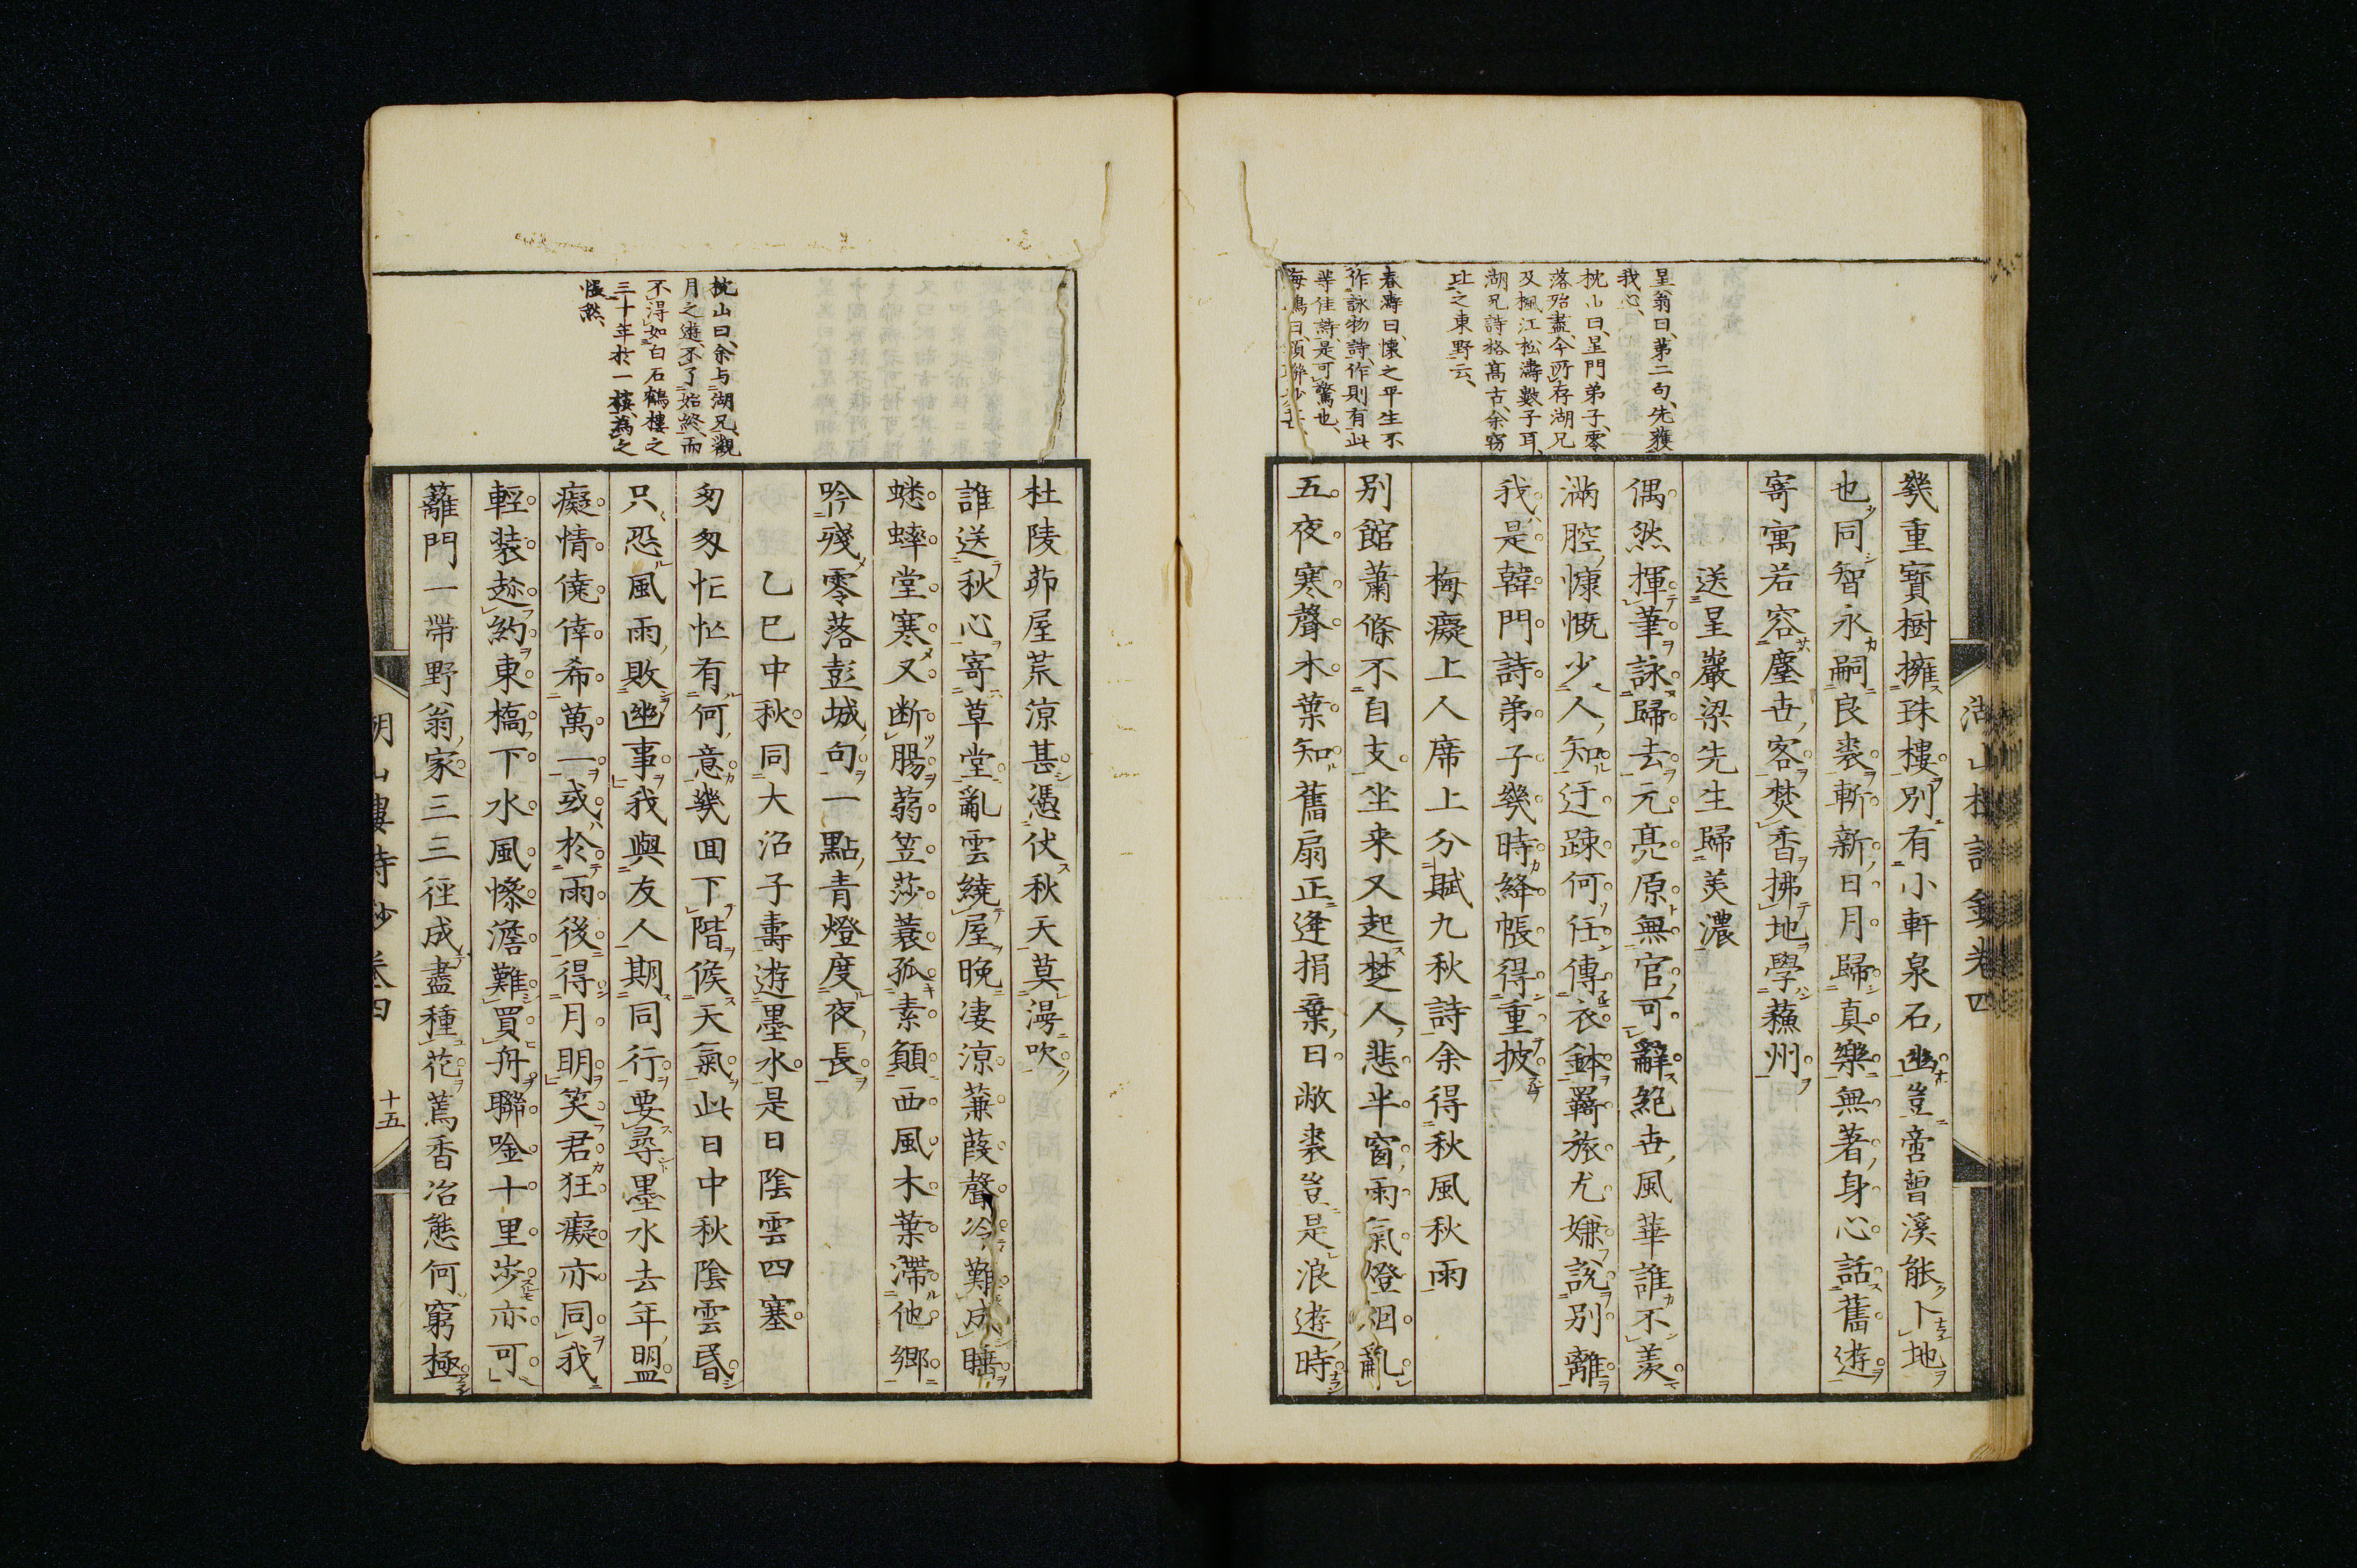 湖山樓詩鈔卷四
星翁曰、第二句、先獲
我心、
枕山曰、星門弟子、零
落殆盡、今所存湖兄
及楓江松濤數子耳、
湖兄詩格高古、余窃
比之東野云、
春濤曰、懷之平生不
作詠物詩、作則有此
等佳詩、是可驚也、
幾重寳樹擁珠樓別有小軒泉石幽豈啻曹溪能卜地
也同智永嗣良裘斬新日月歸真樂無著身心話舊遊
寄寓若容塵世客焚香拂地學蘓州
送星巖梁先生歸美濃
偶然揮筆詠歸去元亮原無官可辭絕世風華誰不羨
滿腔慷慨少人知迂疎何任傳衣鉢羈旅尤嫌說別離
我是韓門詩弟子幾時絳帳得重披
梅癡上人席上分賦九秋詩余得秋風秋雨
別館蕭條不自支坐来又起楚人悲半窗雨氣燈洄亂
五夜寒聲木葉知舊扇正逢捐棄日敝裘豈是浪遊時
枕山曰、余与湖兄觀
月之遊、不了始終、而
不得如白石鶴樓之
三十年於一樓、為之
悵然、
杜陵茆屋荒涼甚憑伏秋天莫漫吹
誰送秋心寄草堂亂雲繞屋晚凄涼蒹葭聲冷難成睡
蟋蟀堂寒又断腸蒻笠莎蓑孤素願西風木葉滯他鄉
吟殘零落彭城句一點青燈度夜長
乙巳中秋同大沼子壽遊墨水是日陰雲四塞
匆匆忙忙有何意幾回下階候天氣此日中秋陰雲昏
只恐風雨敗幽事我與友人期同行要尋墨水去年盟
癡情僥倖希萬一或於雨後得月明笑君狂癡亦同我
輕装趁約東橋下水風慘澹難買舟聯唫十里步亦可
蘺門一帶野翁家三三徑成盡種花蔫香冶態何窮極
湖山樓詩鈔卷四
十五